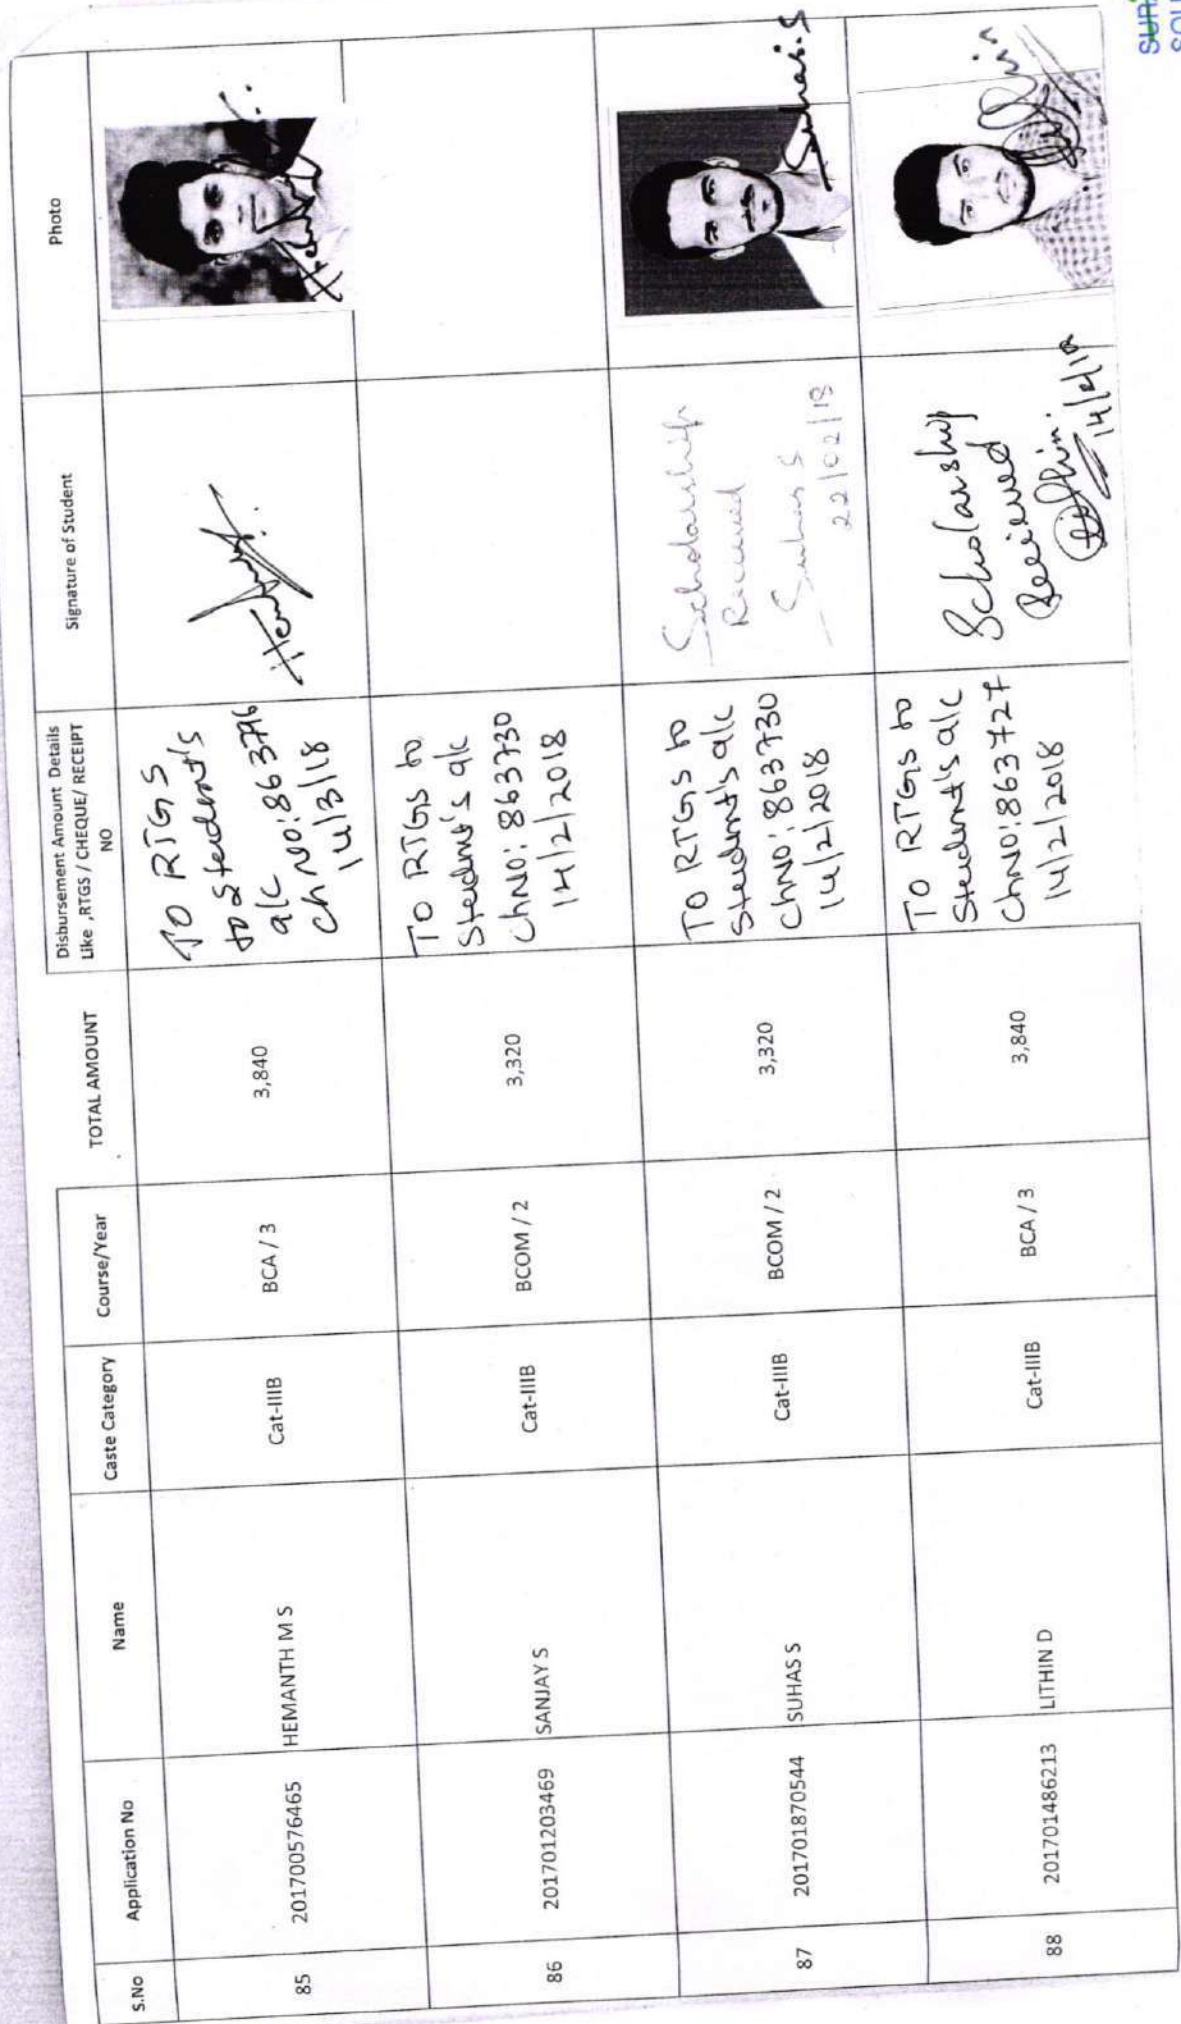 S.No
Application No
Name
Caste Category
Course/Year
TOTAL AMOUNT
Disbursement Amount Details
Like ,RTGS / CHEQUE/ RECEIPT
NO
Signature of Student
Photo
85
201700576465
HEMANTH M S
Cat-IIIB
BCA / 3
3,840
TO RTGS
to Student's
a/c
ch no: 863746
14/3/18
86
201701203469
SANJAY S
Cat-IIIB
BCOM / 2
3,320
TO RTGS to
Student's a/c
ChNo: 863730
14/2/2018
87
201701870544
SUHAS S
Cat-IIIB
BCOM / 2
3,320
TO RTGS to
Student's a/c
ChNo: 863730
14/2/2018
Scholarship
Received
Suhas S
22/02/18
Suhas.S
88
201701486213
LITHIN D
Cat-IIIB
BCA / 3
3,840
TO RTGS to
Student's a/c
ChNo: 863727
14/2/2018
Scholarship
Received